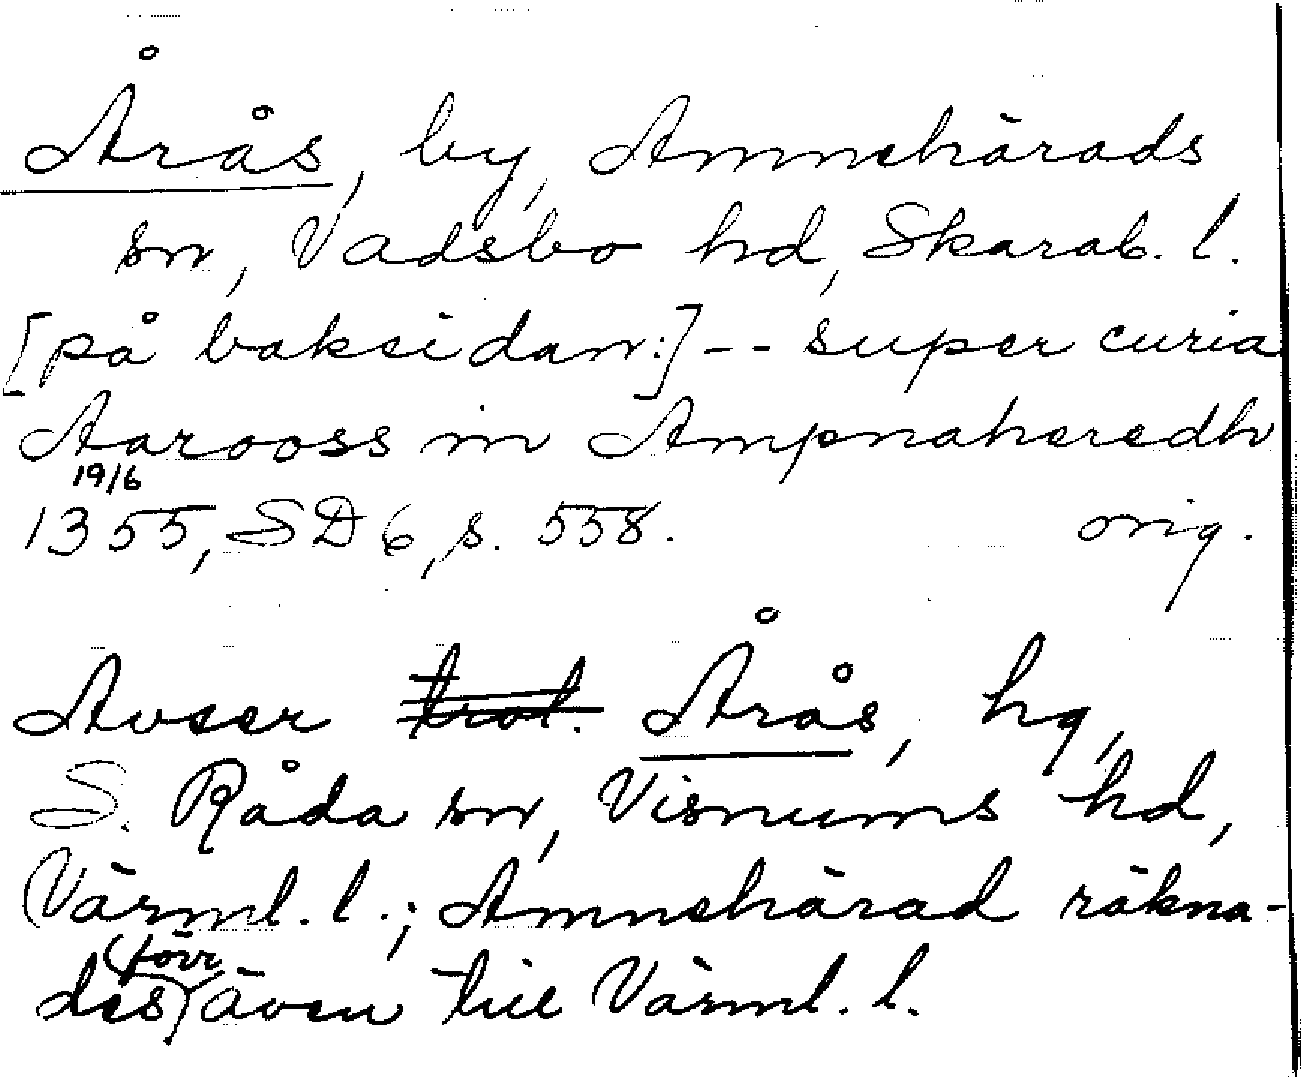 Årås, by, Amnehärads
sn, Vadsbo hd, Skarab. l.
[på baksidan:] -- super curia
Aarooss in Ampnaheredh
19/6
1355, SD 6, s. 558. orig.
Avser trol. Årås, hg,
S. Råda sn, Visnums hd,
Värml. l.; Amnehärad räkna-
des förr även till Värml. l.